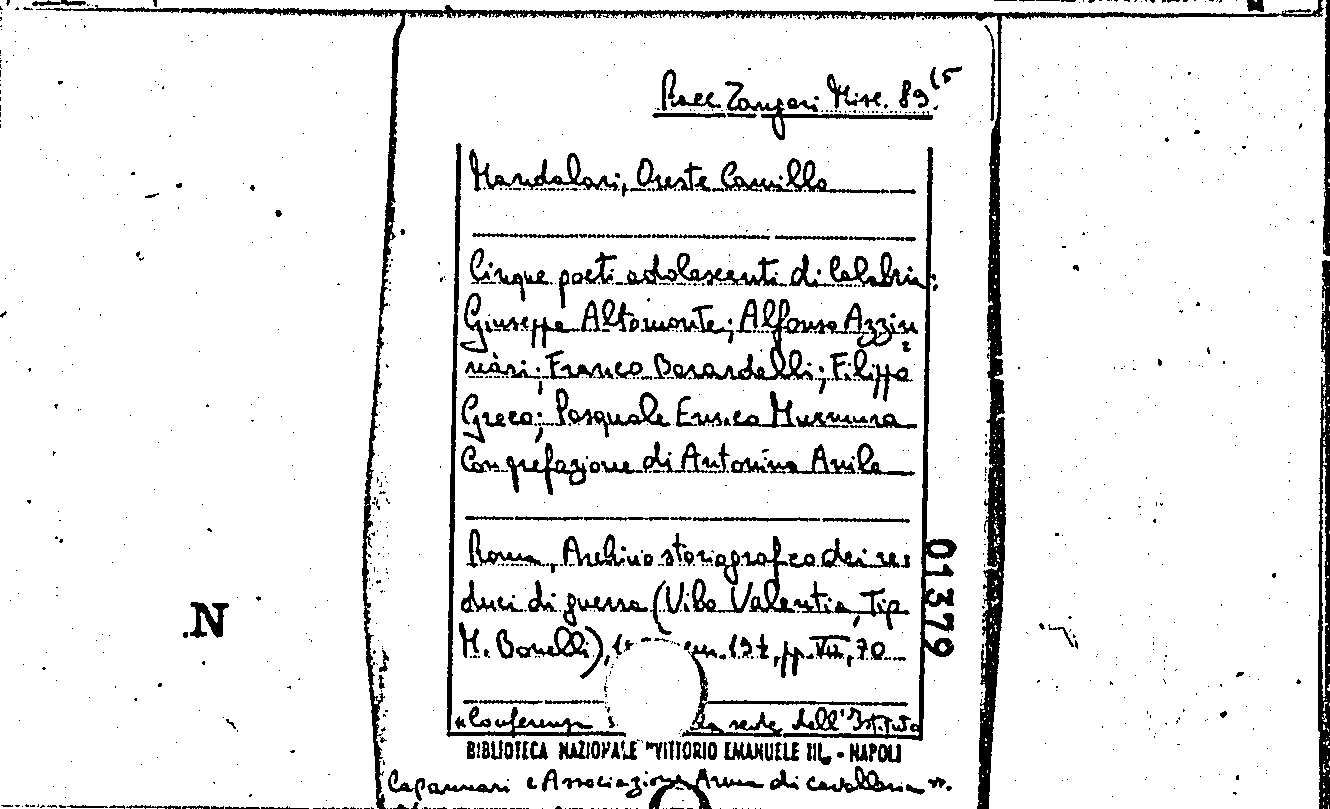 Racc. Zangari Misc. 89.
Mandalari, Oreste Camillo
Cinque poeti adolescenti di Calabria:
Giuseppe Altomonte; Alfonso Azzin
nari; Franco Berardelli; Filippo
Greco; Pasquale Enrico Murmura
Con prefazione di Antonino Anile
Roma, Archivio storiografico dei re
duci di guerra (Vibo Valentia, Tip.
M. Bonelli), pp. VII, 70
"Conferenza sede dell'Istituto
BIBLIOTECA NAZIONALE "VITTORIO EMANUELE III" - NAPOLI
Capannari e Associazione Arma di cavalleria".
01379
.N